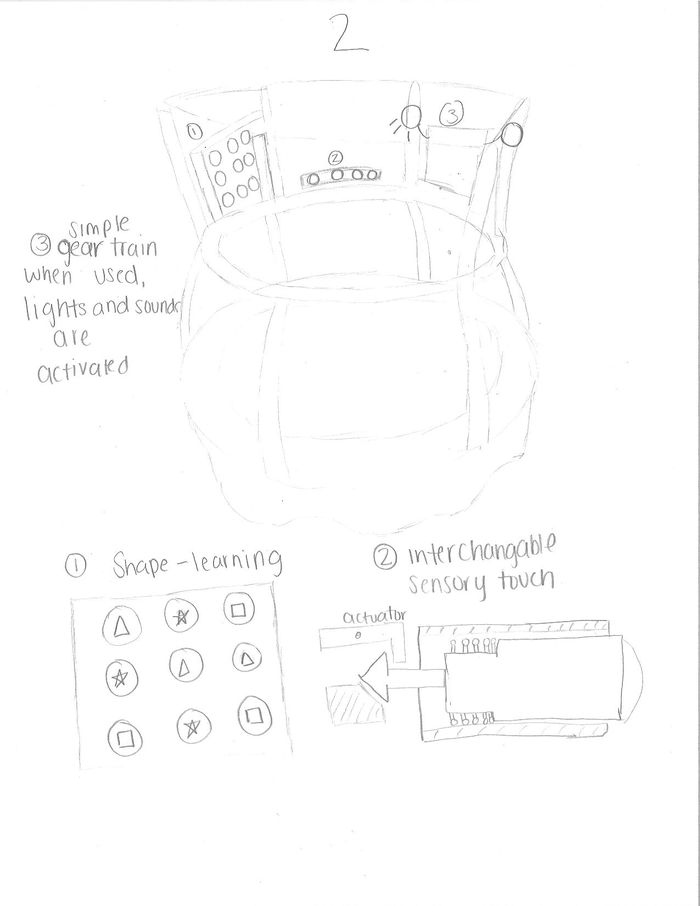 2
①
②
③
simple
③ gear train
when used,
lights and sounds
are
activated
① Shape-learning
② interchangable
sensory touch
actuator